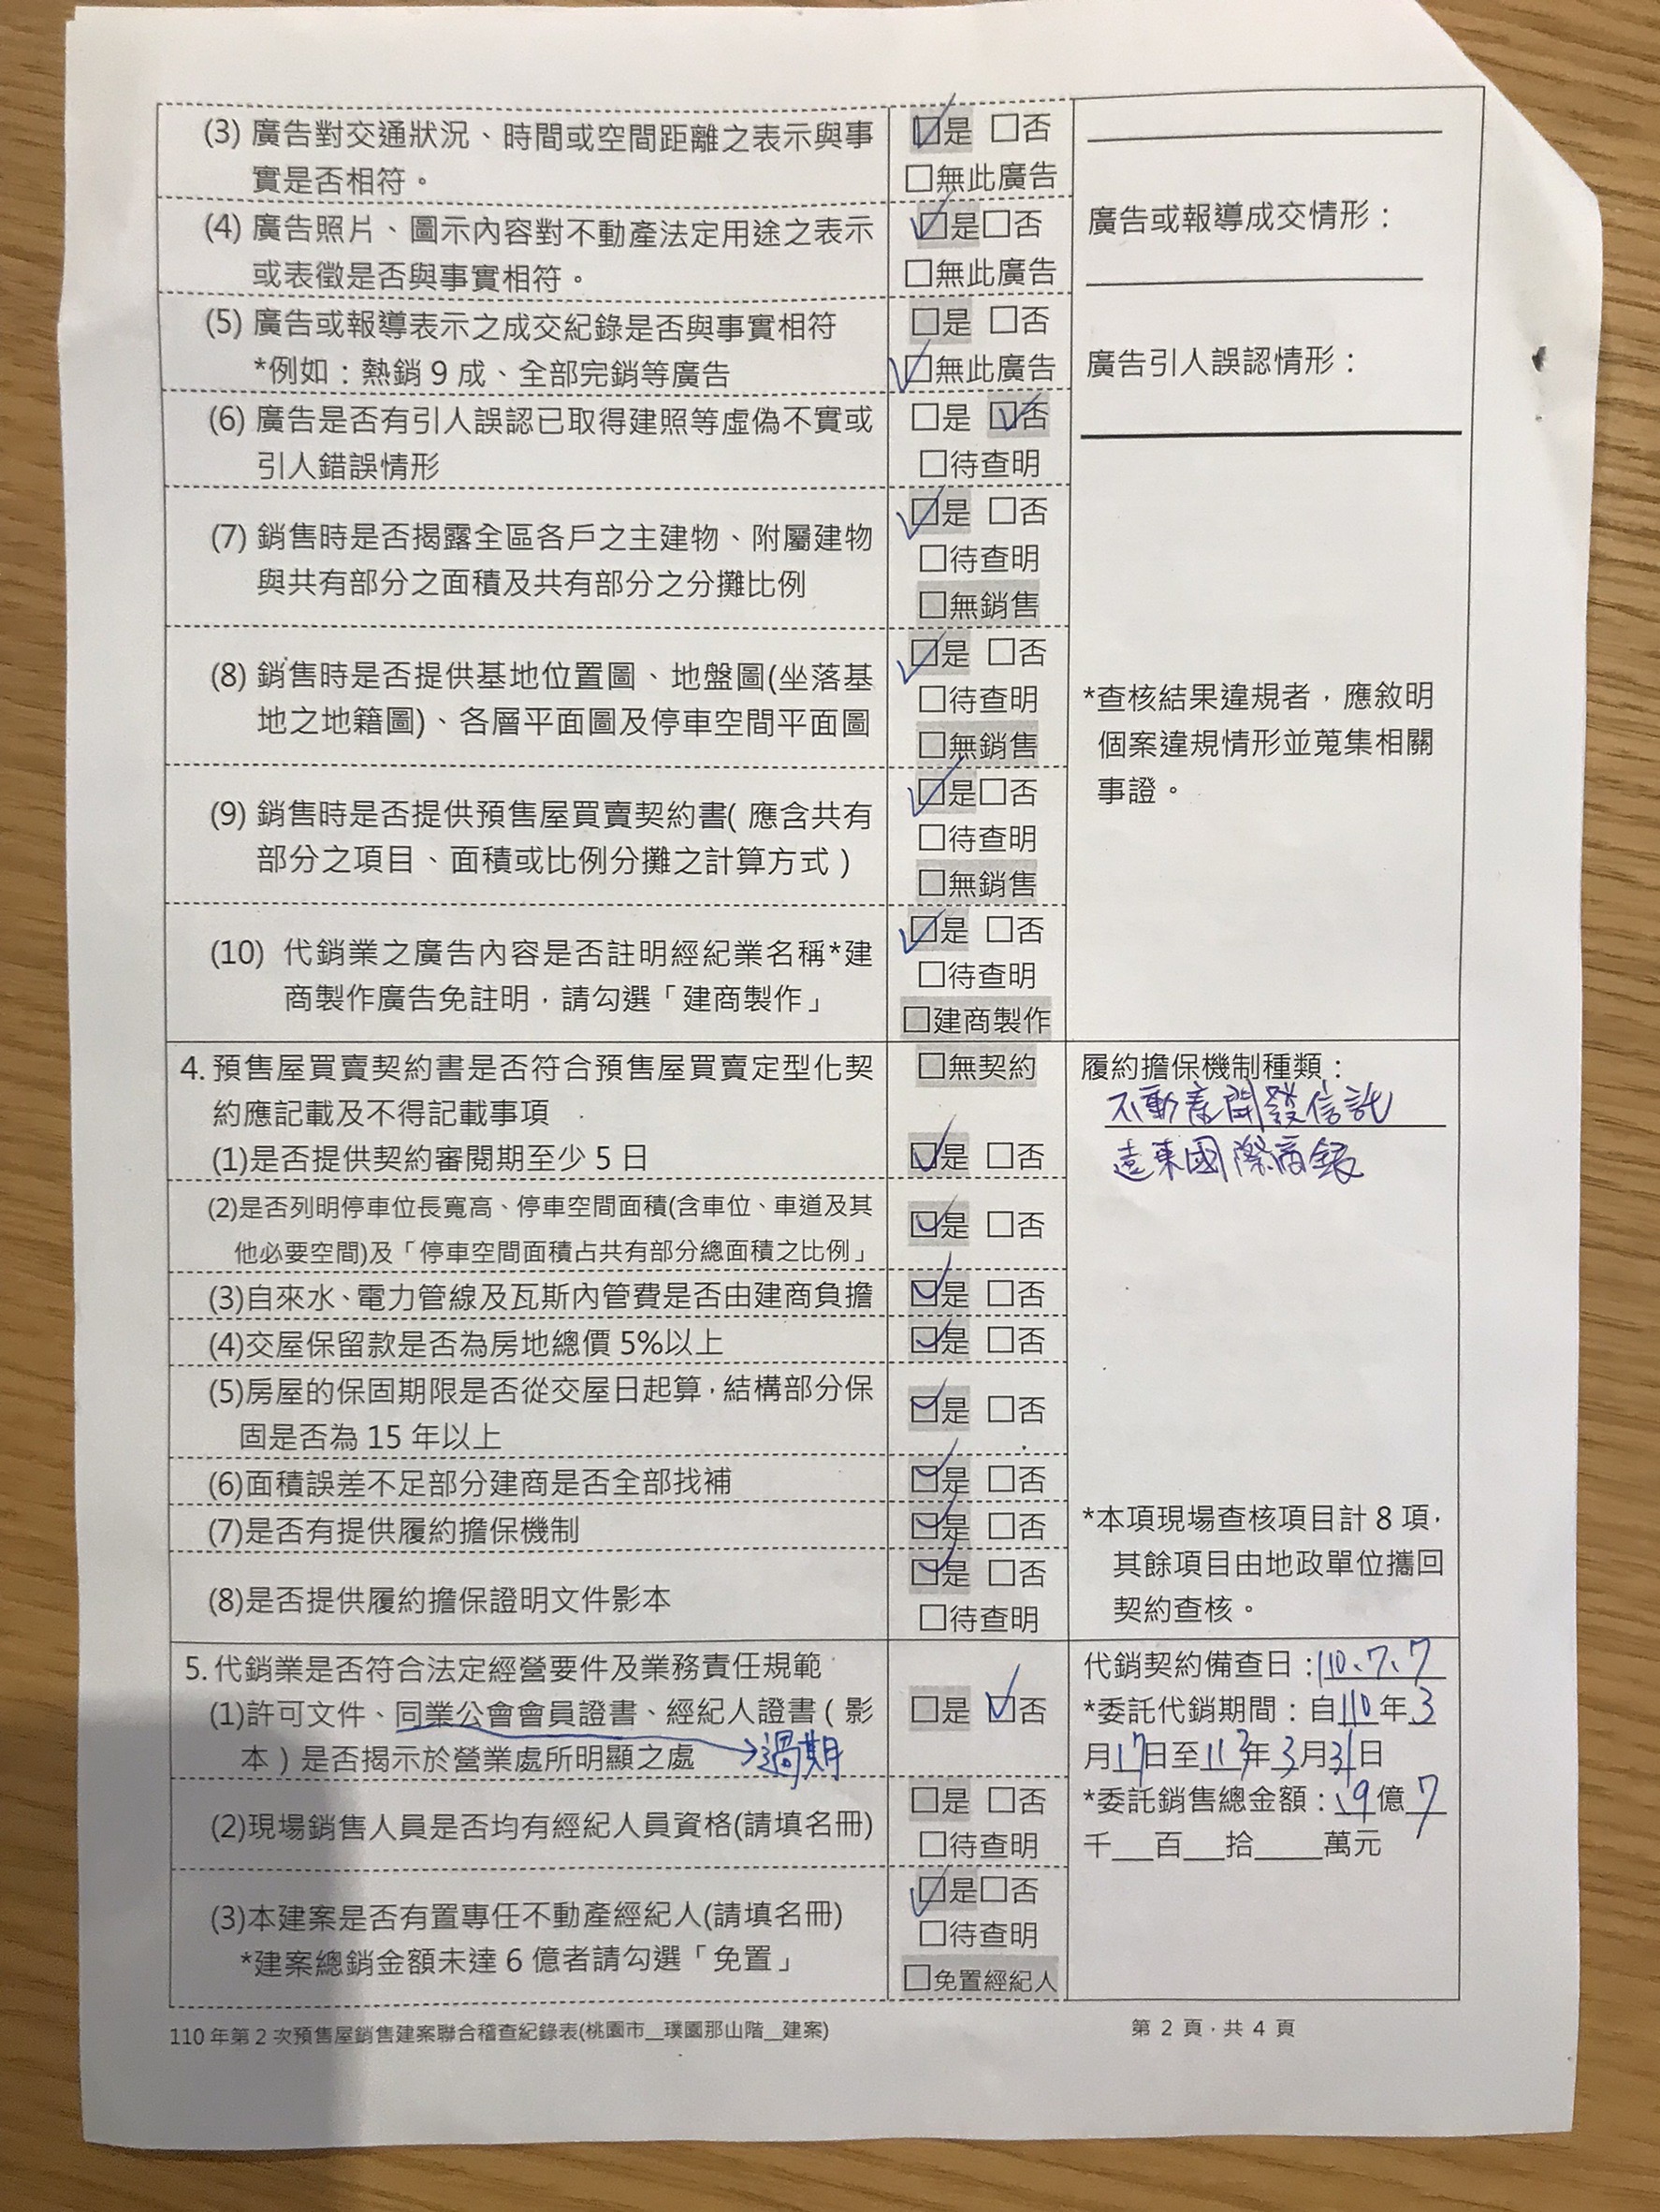 (3) 廣告對交通狀況、時間或空間距離之表示與事
實是否相符。
☑是 □否
□無此廣告
(4) 廣告照片、圖示內容對不動產法定用途之表示
或表徵是否與事實相符。
☑是□否
□無此廣告
廣告或報導成交情形：
(5) 廣告或報導表示之成交紀錄是否與事實相符
*例如：熱銷 9 成、全部完銷等廣告
□是 □否
☑無此廣告
廣告引人誤認情形：
(6) 廣告是否有引人誤認已取得建照等虛偽不實或
引人錯誤情形
□是 ☑否
□待查明
(7) 銷售時是否揭露全區各戶之主建物、附屬建物
與共有部分之面積及共有部分之分攤比例
☑是 □否
□待查明
□無銷售
(8) 銷售時是否提供基地位置圖、地盤圖(坐落基
地之地籍圖)、各層平面圖及停車空間平面圖
☑是 □否
□待查明
□無銷售
*查核結果違規者，應敘明
個案違規情形並蒐集相關
事證。
(9) 銷售時是否提供預售屋買賣契約書( 應含共有
部分之項目、面積或比例分攤之計算方式 )
☑是□否
□待查明
□無銷售
(10) 代銷業之廣告內容是否註明經紀業名稱*建
商製作廣告免註明，請勾選「建商製作」
☑是 □否
□待查明
□建商製作
4. 預售屋買賣契約書是否符合預售屋買賣定型化契
約應記載及不得記載事項
□無契約
(1)是否提供契約審閱期至少 5 日
☑是 □否
履約擔保機制種類：
不動產開發信託
遠東國際商銀
(2)是否列明停車位長寬高、停車空間面積(含車位、車道及其
他必要空間)及「停車空間面積占共有部分總面積之比例」
☑是 □否
(3)自來水、電力管線及瓦斯內管費是否由建商負擔
☑是 □否
(4)交屋保留款是否為房地總價 5%以上
☑是 □否
(5)房屋的保固期限是否從交屋日起算，結構部分保
固是否為 15 年以上
☑是 □否
(6)面積誤差不足部分建商是否全部找補
☑是 □否
(7)是否有提供履約擔保機制
☑是 □否
(8)是否提供履約擔保證明文件影本
☑是 □否
□待查明
*本項現場查核項目計 8 項，
其餘項目由地政單位攜回
契約查核。
5. 代銷業是否符合法定經營要件及業務責任規範
(1)許可文件、同業公會會員證書、經紀人證書 ( 影
本 ) 是否揭示於營業處所明顯之處
過期
□是 ☑否
代銷契約備查日：110、7、7
*委託代銷期間：自110年3
月17日至113年3月31日
*委託銷售總金額：19億7
千___百___拾____萬元
(2)現場銷售人員是否均有經紀人員資格(請填名冊)
□是 □否
□待查明
(3)本建案是否有置專任不動產經紀人(請填名冊)
*建案總銷金額未達 6 億者請勾選「免置」
☑是□否
□待查明
□免置經紀人
110 年第 2 次預售屋銷售建案聯合稽查紀錄表(桃園市__璞園那山階__建案)
第 2 頁，共 4 頁